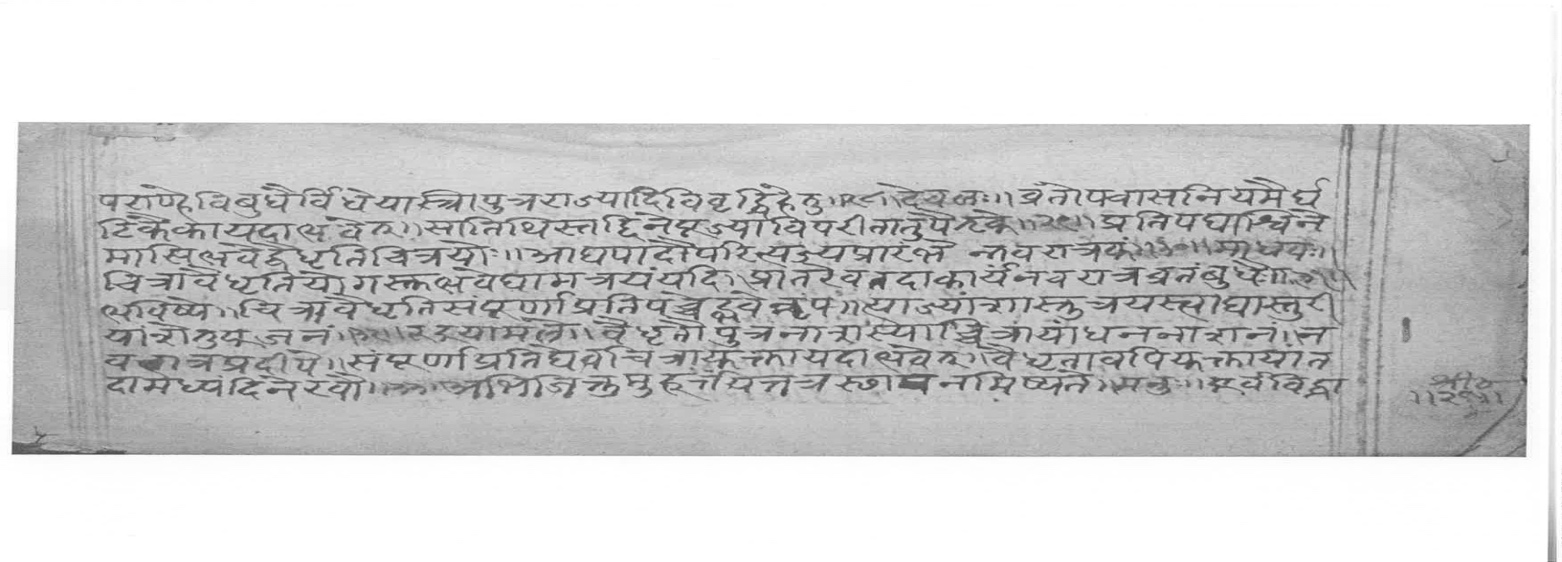 पराण्हे विबुधैर्विधेया स्त्री पुत्रराज्यादि विवृद्धिहेतु देवलः ॥ व्रतोपवासनियमैर्घ
टिकैका यदा भवेत् ॥ सा तिथिस्तद्दिने पूज्या विपरीता तु पैतृके ॥ २९ ॥ प्रतिपद्याश्विने
मासि भवेद्वैधृतिचित्रयोः ॥ आद्यपादौ परित्यज्य प्रारंभे न्नवरात्रकं ॥ ३० ॥ माधवः ॥
चित्रावैधृतियोगस्तु भवेद्यामत्रयं यदि ॥ प्रातरेव तदा कार्यं नवरात्रव्रतं बुधैः ॥
भविष्ये ॥ चित्रावैधृतिसंपूर्णा प्रतिपच्चेद्भवेन्नृप ॥ त्याज्यांशास्तु त्रयस्त्वाद्यास्तुरी
यांशे तु पूजनं ॥ रुद्रयामले ॥ वैधृतौ पुत्रनाशः स्याच्चित्रायां धननाशनं ॥ न
वरात्रप्रदीपे ॥ संपूर्णा प्रतिद्येव चित्रायुक्ता यदा भवेत् ॥ वैधृतावपि युक्ता स्यात
दा मध्यंदिने रवौ ॥ अभिजित्तु मुहूर्त्तं यत्तत्र स्थापनमिष्यते ॥ मनु ॥ पूर्वविद्धा
श्री०
॥ २९ ॥